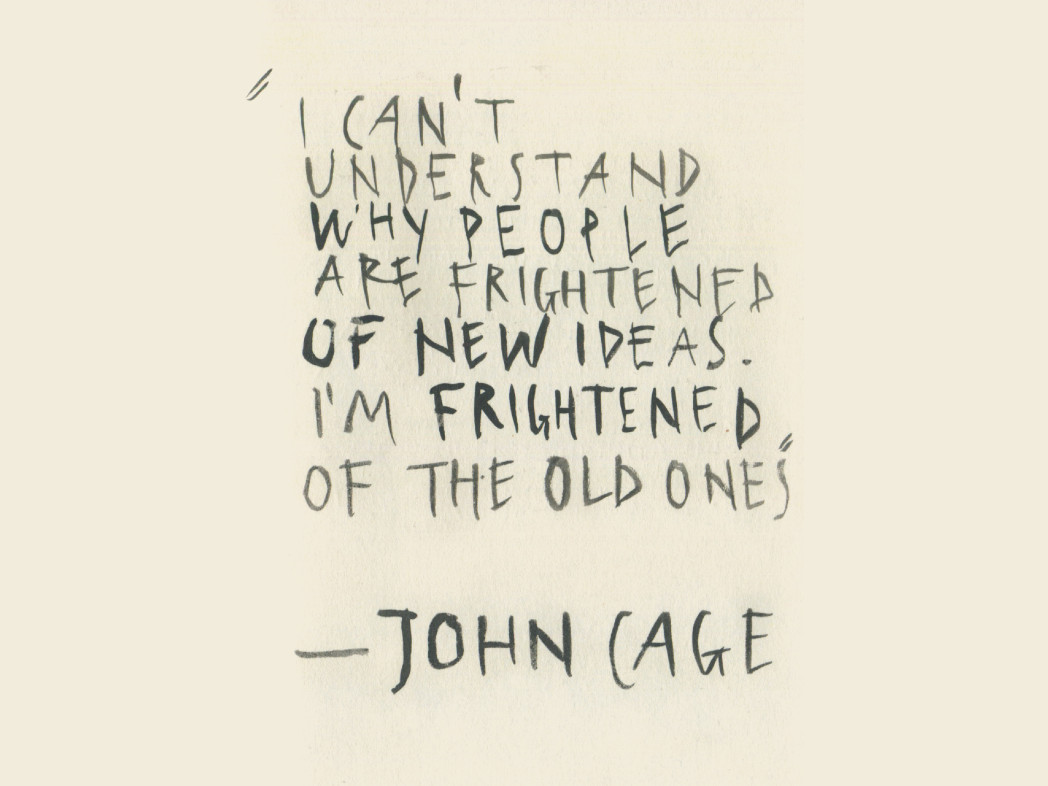 "I CAN'T
UNDERSTAND
WHY PEOPLE
ARE FRIGHTENED
OF NEW IDEAS.
I'M FRIGHTENED
OF THE OLD ONES"
— JOHN CAGE